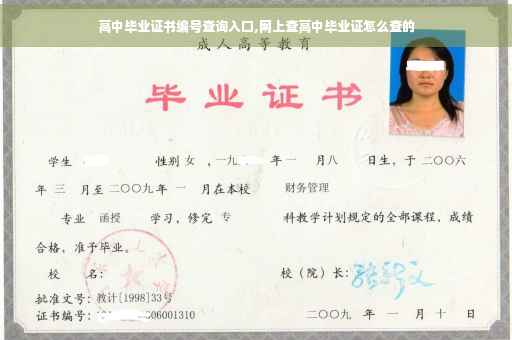 高中毕业证书编号查询入口,网上查高中毕业证怎么查的
成人高等教育
毕业证书
学生 性别 女 , 一九 年 一 月八 日生, 于 二〇〇六
年 三 月至 二〇〇九 年 一 月在本校 财务管理
专业 函授 学习, 修完 专 科教学计划规定的全部课程, 成绩
合格, 准予毕业。
校 名: 校 (院) 长:
批准文号: 教计[1998]33号
证书编号: 06001310 二〇〇九 年 一 月 十 日